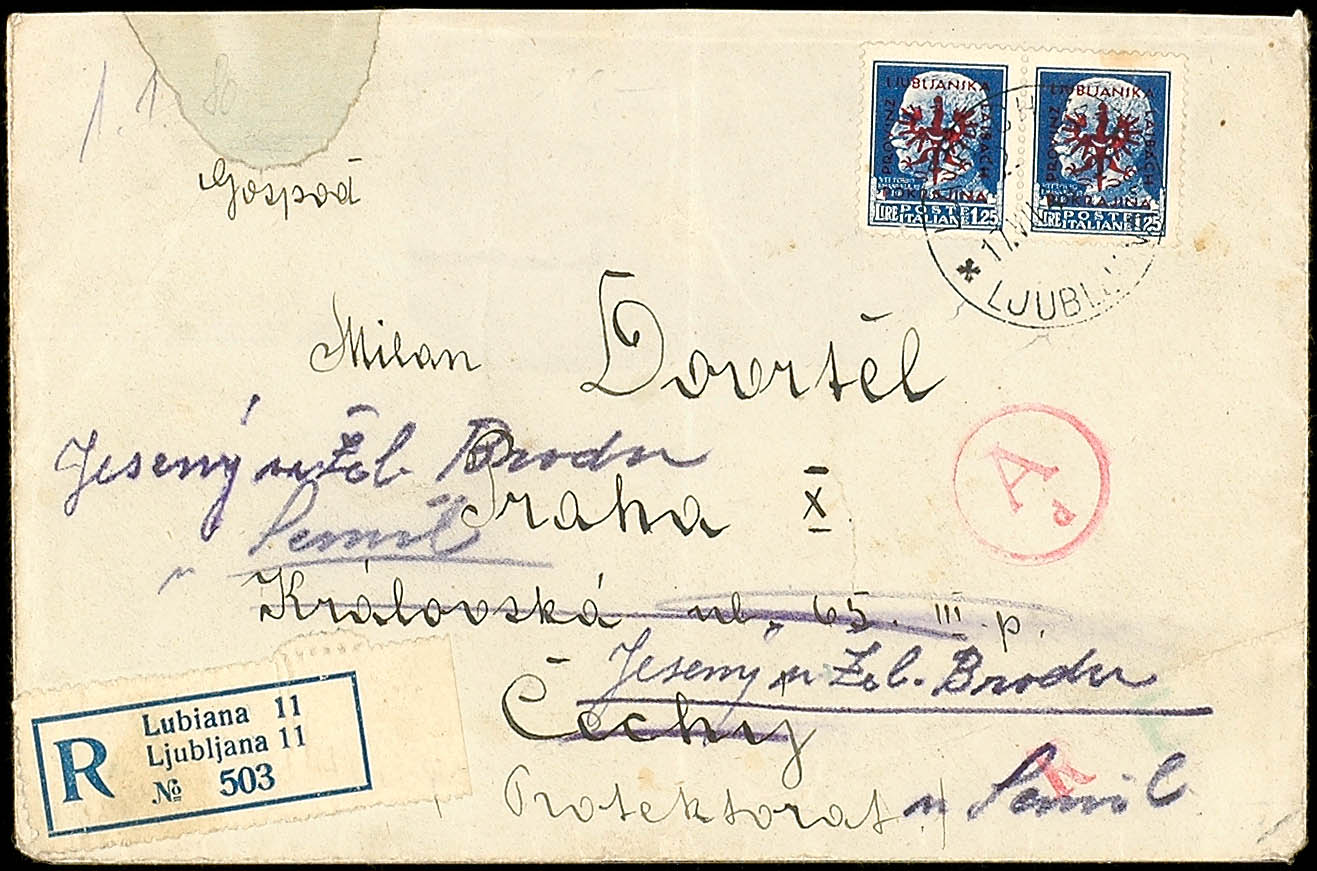 1.1 80
Gospod
LJUBLJANSKA
PROVINZ LAIBACH
POKRAJINA
LIRE POSTE ITALIANE 1,25
LJUBLJANSKA
PROVINZ LAIBACH
POKRAJINA
LIRE POSTE ITALIANE 1,25
17.V
LJUBLJANA
Milan Dovrtěl
Jesený u Žel. Brodu
Praha X.
u Semil
Královská ul. 65. III. p.
Jesený u Žel. Brodu
Čechy
Protektorat
u Semil
A
R
Lubiana 11
Ljubljana 11
№ 503